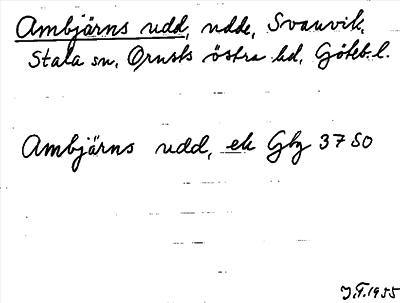 Ambjärns udd, udde, Svanvik,
Stala sn, Orusts östra hd, Göteb. l.
Ambjärns udd, ek Gbg 37 SO
J.F. 1955